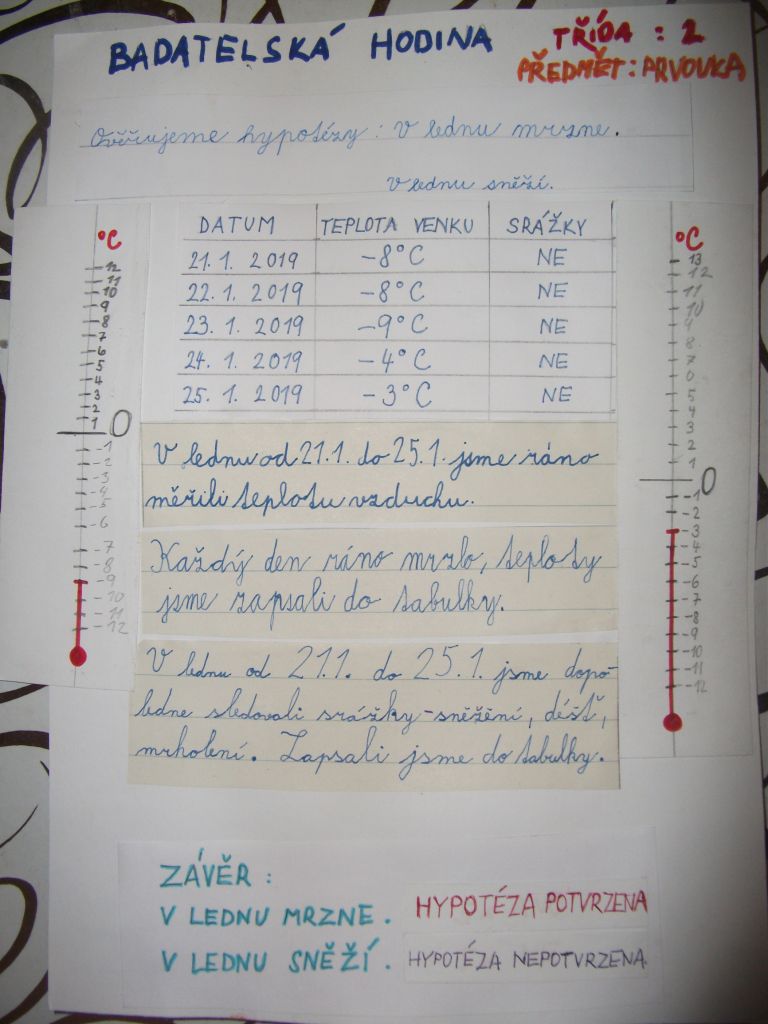 BADATELSKÁ HODINA
TŘÍDA : 2
PŘEDMĚT: PRVOUKA
Ověřujeme hypotézy: V lednu mrzne.
V lednu sněží.
°C
12
11
10
9
8
7
6
5
4
3
2
1
0
-1
-2
-3
-4
-5
-6
-7
-8
-9
-10
-11
-12
DATUM TEPLOTA VENKU SRÁŽKY
21. 1. 2019 -8°C NE
22. 1. 2019 -8°C NE
23. 1. 2019 -9°C NE
24. 1. 2019 -4°C NE
25. 1. 2019 -3°C NE
°C
13
12
11
10
9
8
7
6
5
4
3
2
1
0
-1
-2
-3
-4
-5
-6
-7
-8
-9
-10
-11
-12
V lednu od 21.1. do 25.1. jsme ráno
měřili teplotu vzduchu.
Každý den ráno mrzlo, teploty
jsme zapsali do tabulky.
V lednu od 21.1. do 25.1. jsme dopo-
ledne sledovali srážky-sněžení, déšť,
mrholení. Zapsali jsme do tabulky.
ZÁVĚR :
V LEDNU MRZNE. HYPOTÉZA POTVRZENA
V LEDNU SNĚŽÍ. HYPOTÉZA NEPOTVRZENA